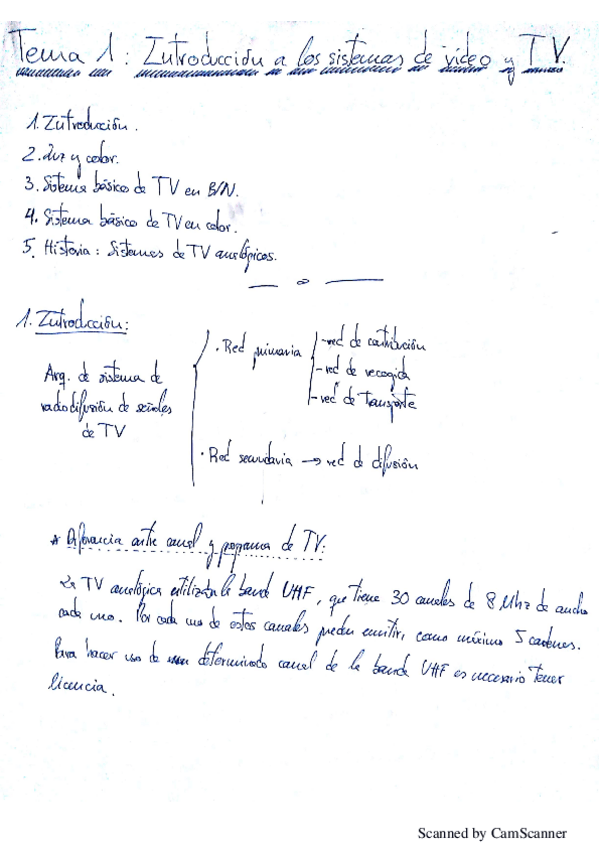 Tema 1: Introducción a los sistemas de vídeo y TV.
1. Introducción.
2. Luz y color.
3. Sistema básico de TV en B/N.
4. Sistema básico de TV en color.
5. Historia: Sistemas de TV analógicos.
1. Introducción:
Arq. de sistema de
radiodifusión de señales
de TV
· Red primaria
-red de contribución
-red de recogida
-red de transporte
· Red secundaria → red de difusión
* Diferencia entre canal y programa de TV:
La TV analógica utilizaba la banda UHF, que tiene 30 canales de 8 Mhz de ancho
cada uno. Por cada uno de estos canales pueden emitir, como máximo 5 cadenas.
Para hacer uso de un determinado canal de la banda UHF es necesario tener
licencia.
Scanned by CamScanner